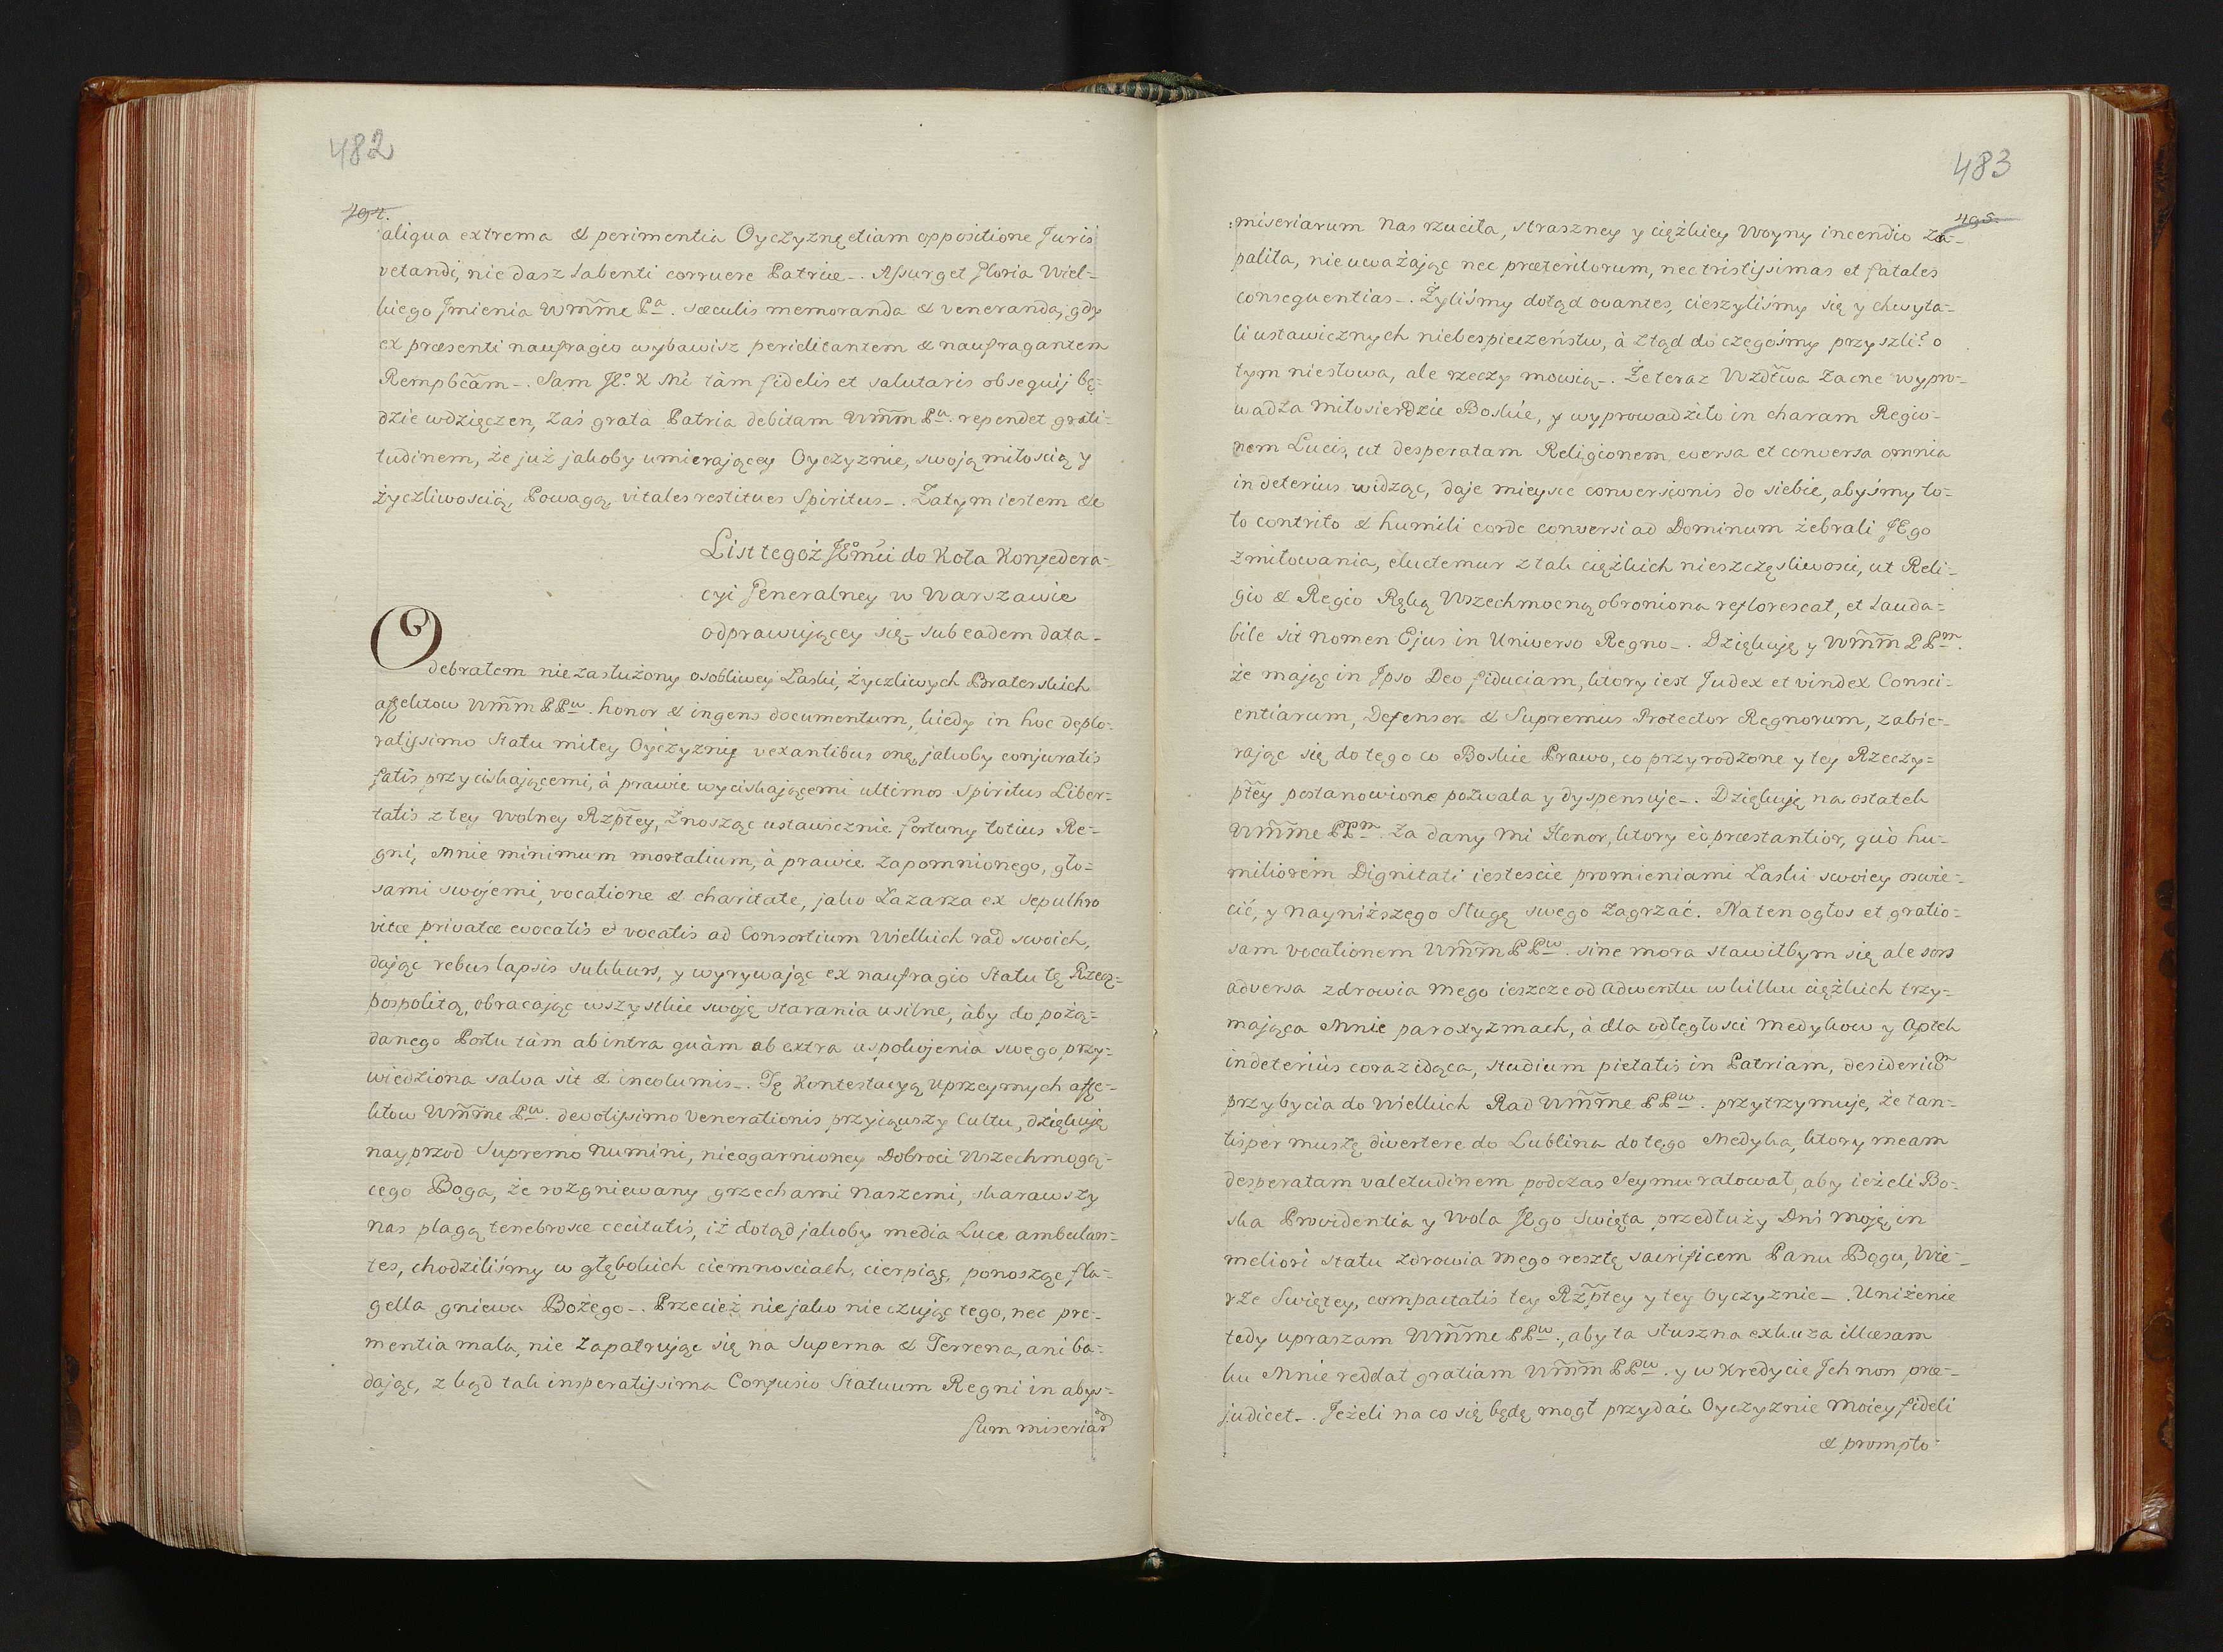 482
494.
aliqua extrema & perimentia Oyczyznę etiam oppositione Juris
vetandi, nie dasz labenti corruere Patriæ_. Assurget gloria Wiel-
kiego Jmienia Wm̃m̃e Pa. sæculis memoranda & veneranda, gdy
ex præsenti naufragio wybawisz periclitantem & naufragantem
Rempbc̃am_. Sam JKo. X Mć tàm fidelis et salutaris obsequij bę-
dzie wdzięczen, zaś grata Patria debitam Wm̃m̃ Pu. rependet grati-
tudinem, że już jakoby umierającey Oyczyznie, swoją miłoscią y
życzliwoscią, Powagą, vitales restitues Spiritus_. Zatym iestem &c
List tegoż JEo mći do Koła Konfedera-
cyi Generalney w Warszawie
odprawującey się_ sub eadem data_
Odebrałem niezasłużony osobliwey Łaski, życzliwych Braterskich
affektow Wm̃m̃ PPw. honor & ingens documentum, kiedy in hoc deplo-
ratissimo statu miłey Oyczyznię vexantibus onę, jakoby conjuratis
fatis przyciskającemi, à prawie wyciskającemi ultimos Spiritus Liber-
tatis z tey Wolney Rzp̃tey, znosząc ustawicznie fortuny totius Re-
gni, Mnie minimum mortalium, à prawie zapomnionego, gło-
sami swojemi, vocatione & charitate, jako Łazarza ex sepulkro
vitæ privatæ evocatis & vocatis ad Consortium Wielkich rad swoich,
dając rebus lapsis sukkurs, y wyrywając ex naufragio Statu tę Rzecz-
pospolitą, obracając wszystkie swoję starania usilne, aby do pożą-
danego Portu tàm ab intra quàm ab extra uspokojenia swego przy-
wiedziona salva sit & incolumis_. Tę Kontestacyą uprzeymych affe-
ktow Wm̃m̃e Pw. devotissimo venerationis przyiąwszy Cultu, dziękuję
nayprzod Supremo Numini, nieogarnioney Dobroci Wszechmogą-
cego Boga, że rozgniewany grzechami Naszemi, skarawszy
Nas plagą tenebrosæ cecitatis, iż dotąd jakoby media Luce ambulan-
tes, chodziliśmy w głębokich ciemnosciach, cierpiąc, ponosząc fla-
gella gniewu Bożego_. Przecież niejako nie czując tego, nec pre-
mentia mala, nie zapatrując się na Superna & Terrena, ani ba-
dając, zkąd tak insperatissima Confusio Statuum Regni in abys-
sum miseriar̃
483
495.
miseriarum Nas rzuciła, straszney y ciężkiey Woyny incendio za-
paliła, nie uważając nec præteritorum, nec tristissimas et fatales
consequentias_. Żyliśmy dotąd ovantes, cieszyliśmy się y chwyta-
li ustawicznych niebespieczeństw, à ztąd do czegośmy przyszli? o
tym niesłowa, ale rzeczy mowią_. Że teraz Wzdr̃wa zacne wypro-
wadza miłosierdzie Boskie, y wyprowadziło in charam Regio-
nem Lucis, ut desperatam Religionem, eversa et conversa omnia
in deterius widząc, daje mieysce conversionis do siebie, abyśmy to-
to contrito & humili corde conversi ad Dominum żebrali JEgo
zmiłowania, eluctemur z tak ciężkich nieszczęsliwosci, ut Reli-
gio & Regio Ręką Wszechmocną obroniona reflorescat, et lauda-
bile sit Nomen Ejus in Universo Regno_. Dziękuję y Wm̃m̃ PPm.
że mając in Ipso Deo fiduciam, ktory iest Judex et vindex Consci-
entiarum, Defensor & Supremus Protector Regnorum, zabie-
rając się do tego co Boskie Prawo, co przyrodzone y tey Rzeczy-
p̃tey postanowione pozwala y dyspensuje_. Dziękuję na ostatek
Wm̃m̃e PPm. za dany mi Honor, ktory eò præstantior, quò hu-
miliorem Dignitati iestescie promieniami Łaski swoiey oswie-
cić, y nayniższego Sługę swego zagrzać. Na ten ogłos et gratio-
sam vocationem Wm̃m̃ PPw. sine mora stawiłbym się, ale sors
adversa zdrowia mego ieszcze od Adwentu w kilku ciężkich trzy-
mająca Mnie paroxyzmach, à dla odległosci Medykow y Aptek
in deterius coraz idąca, studium pietatis in Patriam, desiderium
przybycia do Wielkich Rad Wm̃m̃e PPw. przytrzymuje, że tan-
tisper muszę divertere do Lublina do tego Medyka, ktory meam
desperatam valetudinem podczas Seymu ratował, aby ieżeli Bo-
ska Providentia y Wola JEgo Swięta przedłuży Dni moję, in
meliori statu zdrowia mego resztę sacrificem Panu Bogu, Wie-
rze Swiętey, compactatis tey Rzp̃tey y tey Oyczyznie_. Uniżenie
tedy upraszam Wm̃m̃e PPw., aby ta słuszna exkuza illæsam
ku Mnie reddat gratiam Wm̃m̃ PPw. y w Kredycie Ich non præ-
judicet_. Jeżeli na co się będę mogł przydać Oyczyznie Moiey, fideli
& prompto